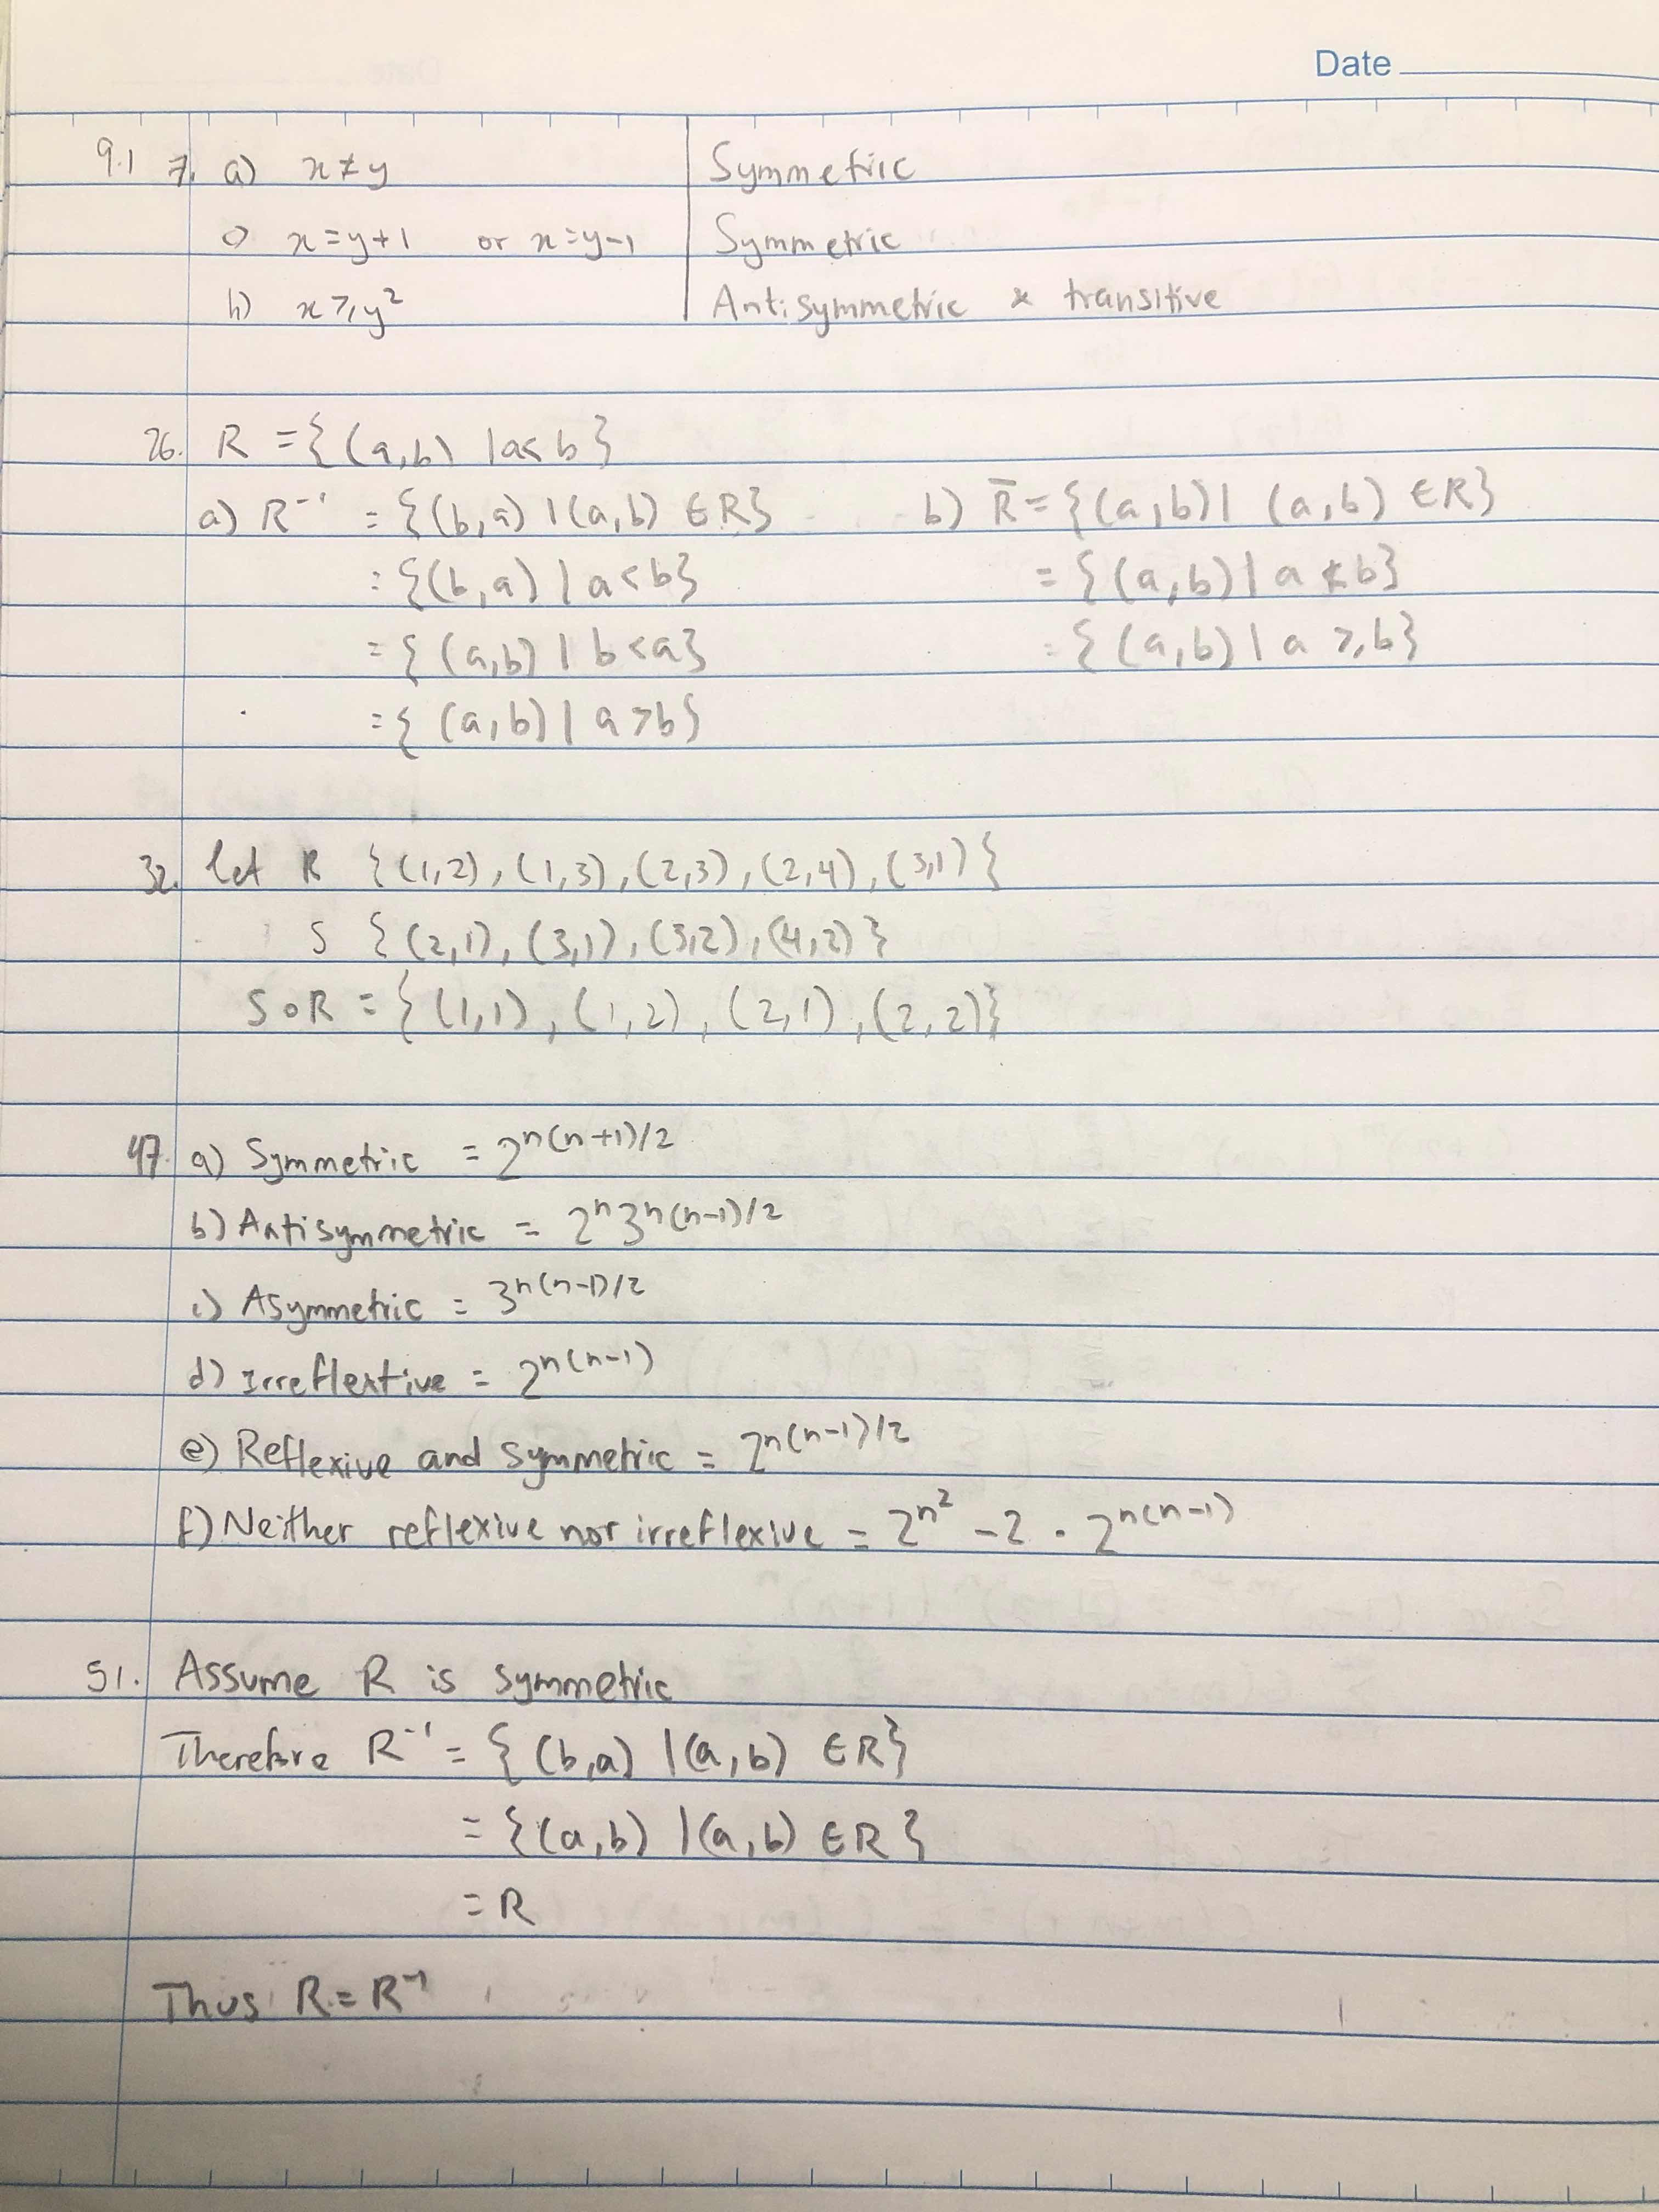 Date
9.1 7. a) x ≠ y Symmetric
c) x = y+1 or x = y-1 Symmetric
h) x ≥ y² Antisymmetric & transitive
26. R = {(a,b) | a < b}
a) R⁻¹ = {(b,a) | (a,b) ∈ R} b) R̅ = {(a,b) | (a,b) ∈ R}
= {(b,a) | a < b} = {(a,b) | a ≮ b}
= {(a,b) | b < a} = {(a,b) | a ≥ b}
= {(a,b) | a > b}
32. let R {(1,2), (1,3), (2,3), (2,4), (3,1)}
S {(2,1), (3,1), (3,2), (4,2)}
S∘R = {(1,1), (1,2), (2,1), (2,2)}
47. a) Symmetric = 2^n(n+1)/2
b) Antisymmetric = 2^n 3^n(n-1)/2
c) Asymmetric = 3^n(n-1)/2
d) Irreflextive = 2^n(n-1)
e) Reflexive and symmetric = 2^n(n-1)/2
f) Neither reflexive nor irreflexive = 2^n² - 2 · 2^n(n-1)
51. Assume R is symmetric
Therefore R⁻¹ = {(b,a) | (a,b) ∈ R}
= {(a,b) | (a,b) ∈ R}
= R
Thus R = R⁻¹